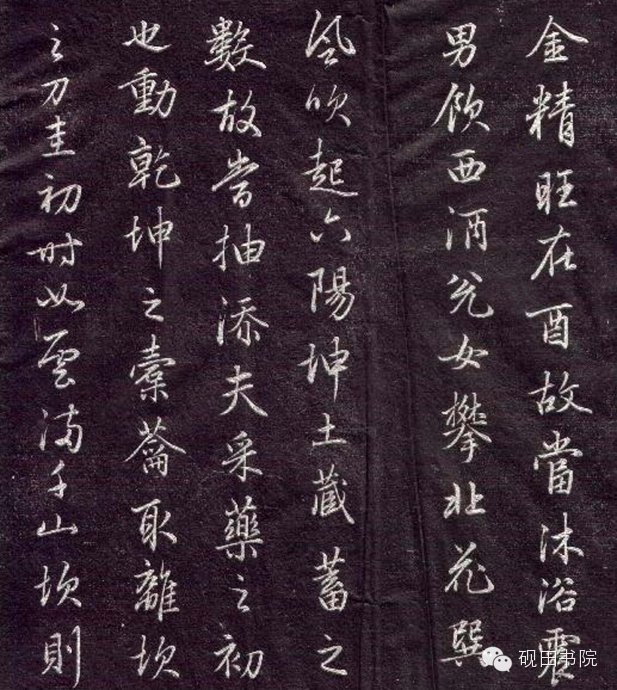 金精旺在酉故當沐浴震
男飲西酒兌女攀北花巽
風吹起六陽坤土藏蓄之
數故當抽添夫采藥之初
也動乾坤之橐籥取離坎
之刀圭初時如雲滿千山坎則
砚田书院